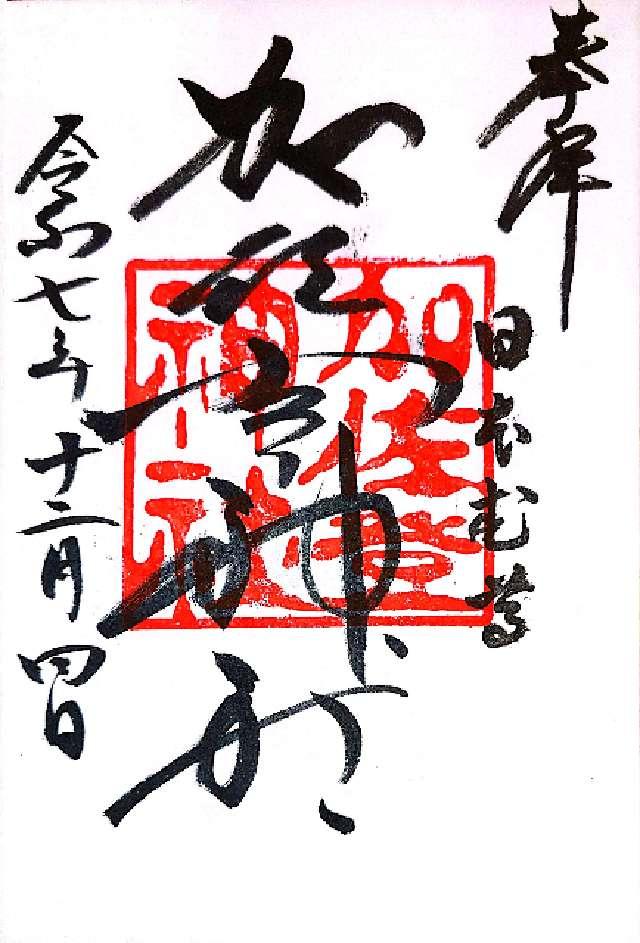 奉拝
日本武尊
加佐登神社
加佐登神社
令和七年十二月四日